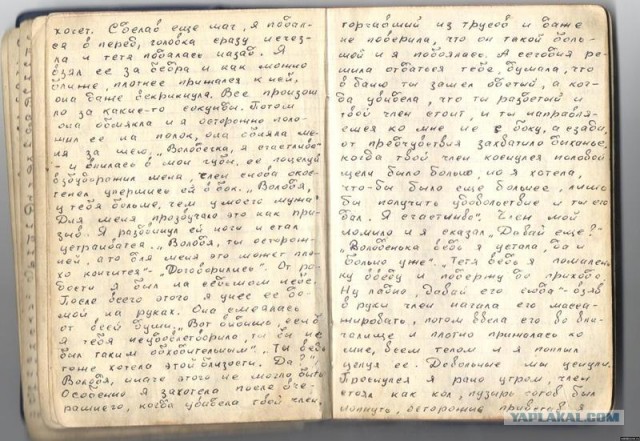 хочет. Сделав еще шаг, я подал-
ся вперед, головка сразу исчез-
ла и тетя подалась назад. Я
взял ее за бедра и как можно
ближе, плотнее прижался к ней,
она даже вскрикнула. Все произош
ло за какие-то секунды. Потом
она обмякла и я осторожно поло-
жил ее на полок, она обняла ме-
ня за шею. „Володечка, я счастлива"
- и впилась в мои губы, ее поцелуй
взбудоражил меня, член снова окос-
тенел уперлись ей в бок. „Володя,
у тебя больше, чем у моего мужа"
Для меня прозвучало это как при-
зыв. Я раздвинул ей ноги и стал
устраиваться. „Володя, ты осторож-
ней, а то для меня это может пло-
хо кончится" - „Договорились". От ра-
дости я был на седьмом небе.
После всего этого я унес ее до-
мой на руках. Она смеялась
от всей души. „Вот видишь, если б
я тебя неудовлетворила, ты бы не
был таким обходительным". „Ты ведь
тоже хотела этой близости. Да?" „
Володя, иначе этого не могло быть
Особенно я захотела после вче-
рашнего, когда увидела твой член,
торчавший из трусов и даже
не поверила, что он такой боль-
шой и я побоялась. А сегодня ре-
шила отдаться тебе, думала, что
в баню ты зашел одетый, а ког-
да увидела, что ты раздетый и
твой член стоит, и ты направля-
ешся ко мне не с боку, а сзади,
от предчувствия захватило дыханье,
когда твой член коснулся половой
щели было больно, но я хотела,
что-бы было еще больнее, лишь
бы получить удовольствие и ты его
дал. Я счастлива". Член мой
ломило и я сказал „Давай еще?"
„Володенька ведь я устала, да и
больно уже". „Тетя ведь я помалень
ку введу и подержу до прихода"
Ну ладно, давай его сюда" - взяв
в руки член начала его масса-
жировать, потом ввела его во вла-
галище и плотно прижалась ко
мне, всем телом и я поплыл
целуя ее. Довольные мы уснули.
Проснулся я рано утром, член
стоял как кол, пузырь готов был
лопнуть, осторожно приветов я
YAPLAKAL.COM